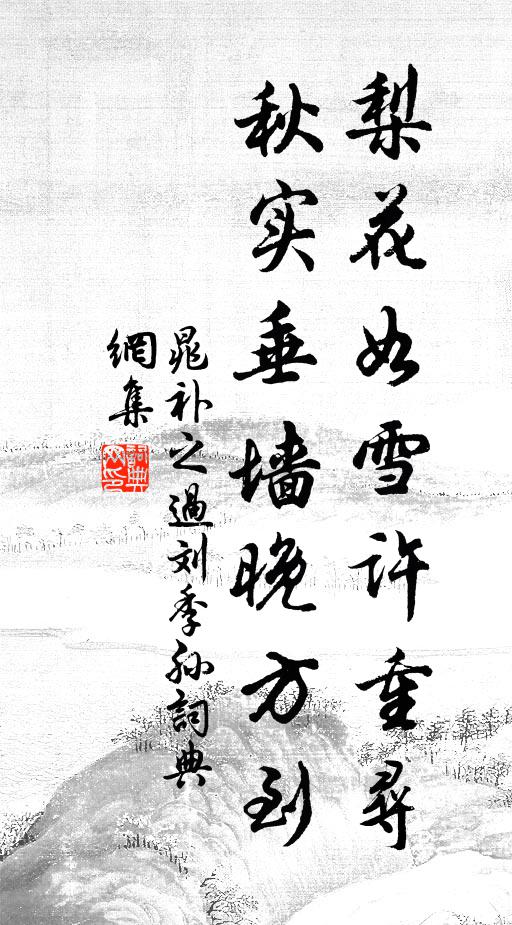 梨花如雪许重寻
秋实垂墙晚方到
晁补之過刘季孙詞典
網集
詞典
网印